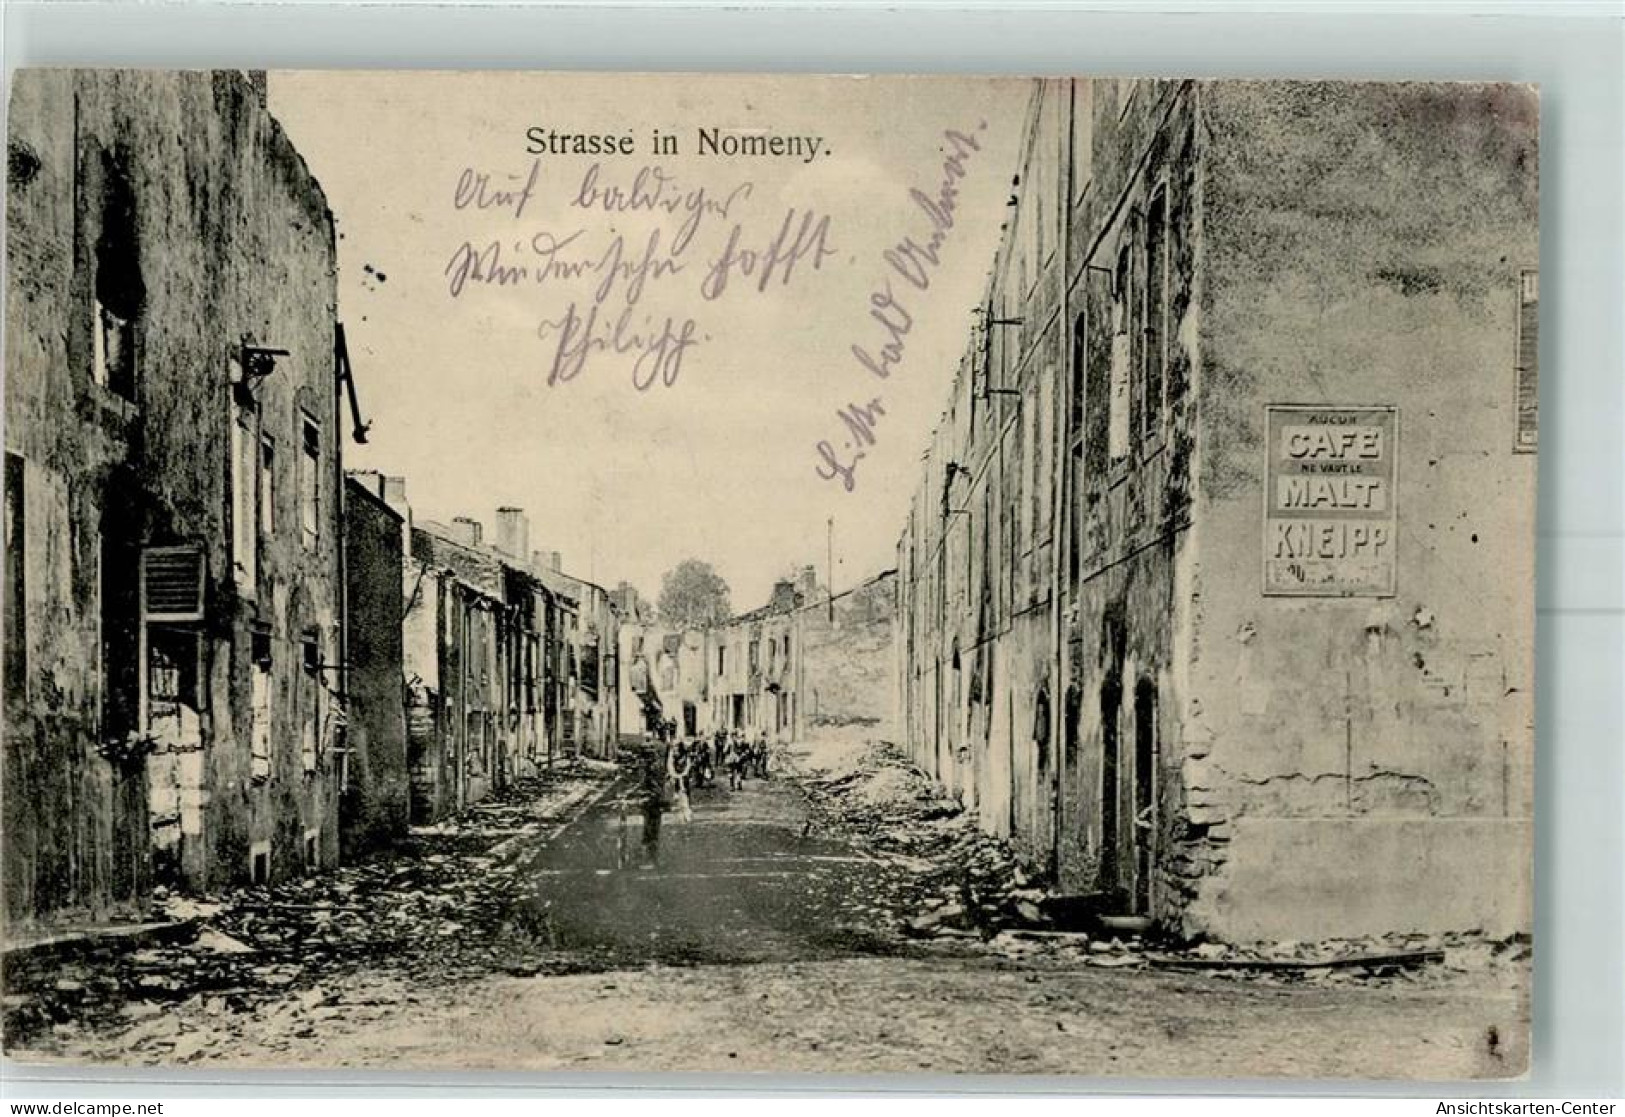 Strasse in Nomeny.
Auf baldiges
Wiedersehn hofft
Philipp.
Bitte bald Antwort.
AUCUN
CAFÉ
NE VAUT LE
MALT
KNEIPP
delcampe.net
Ansichtskarten-Center